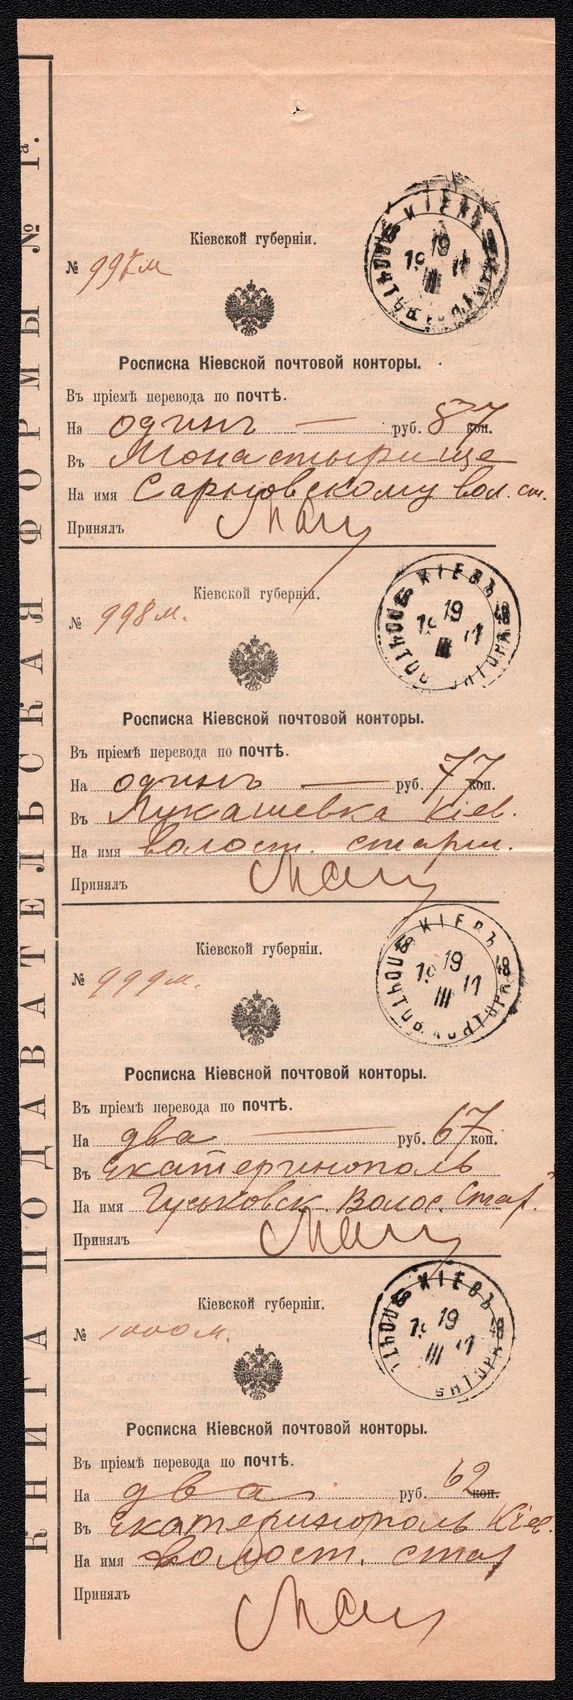 КНИГА ПОДАВАТЕЛЬСКАЯ ФОРМЫ № 1а.
Кіевской губерніи.
№ 997м
КІЕВЪ
19 III 17
Росписка Кіевской почтовой конторы.
Въ пріемѣ перевода по ПОЧТѢ.
На одинъ — руб. 87 коп.
Въ Монастырище
На имя Сарновскому вол. ст.
Принялъ
Кіевской губерніи.
№ 998м.
КІЕВЪ
19 III 17
Росписка Кіевской почтовой конторы.
Въ пріемѣ перевода по ПОЧТѢ.
На одинъ — руб. 77 коп.
Въ Лукашевка Кіев.
На имя волост. старш.
Принялъ
Кіевской губерніи.
№ 999м.
КІЕВЪ
19 III 17
Росписка Кіевсной почтовой конторы.
Въ пріемѣ перевода по ПОЧТѢ.
На два — руб. 67 коп.
Въ Екатеринополь
На имя Гуськовск. Волос. Стар.
Принялъ
Кіевской губерніи.
№ 1000м.
КІЕВЪ
19 III 17
Росписка Кіевской почтовой конторы.
Въ пріемѣ перевода по ПОЧТѢ.
На два руб. 62 коп.
Въ Екатеринополь Кіев.
На имя волост. стар
Принялъ